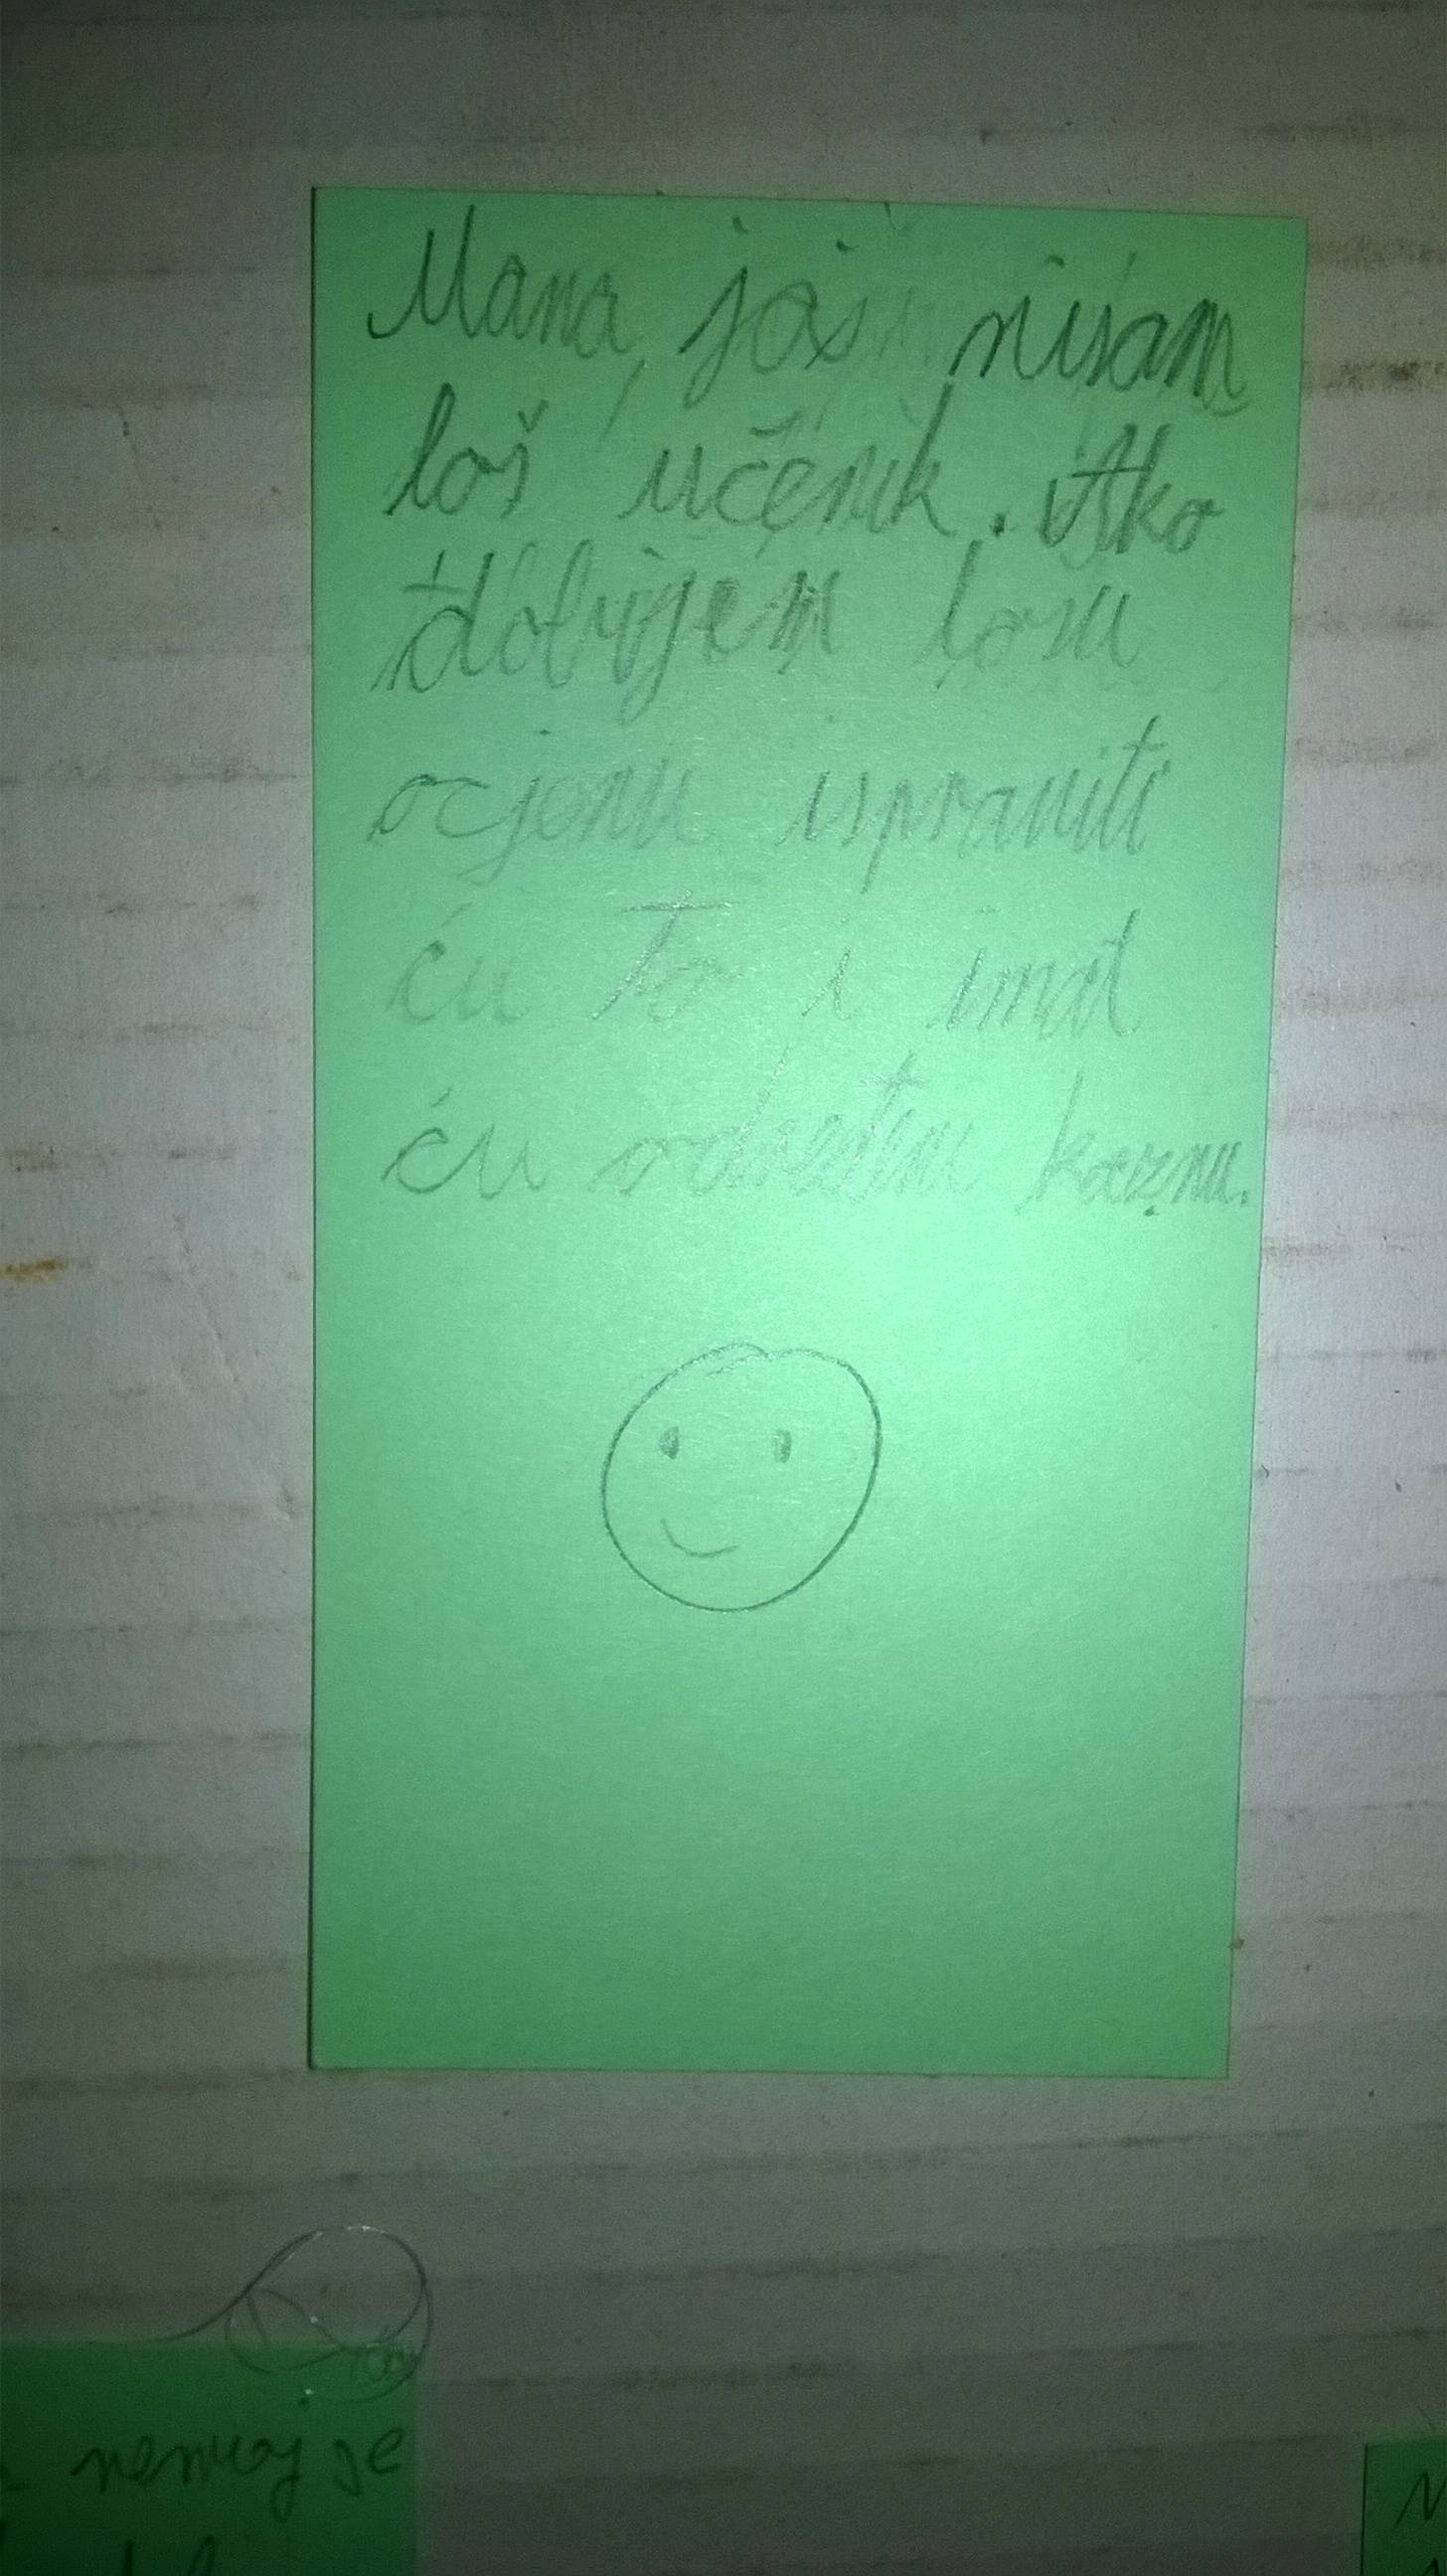 Mama, još nisam
loš učenik. Ako
dobijem lošu
ocjenu ispraviti
ću to i imat
ću određenu kaznu.
nemoj se